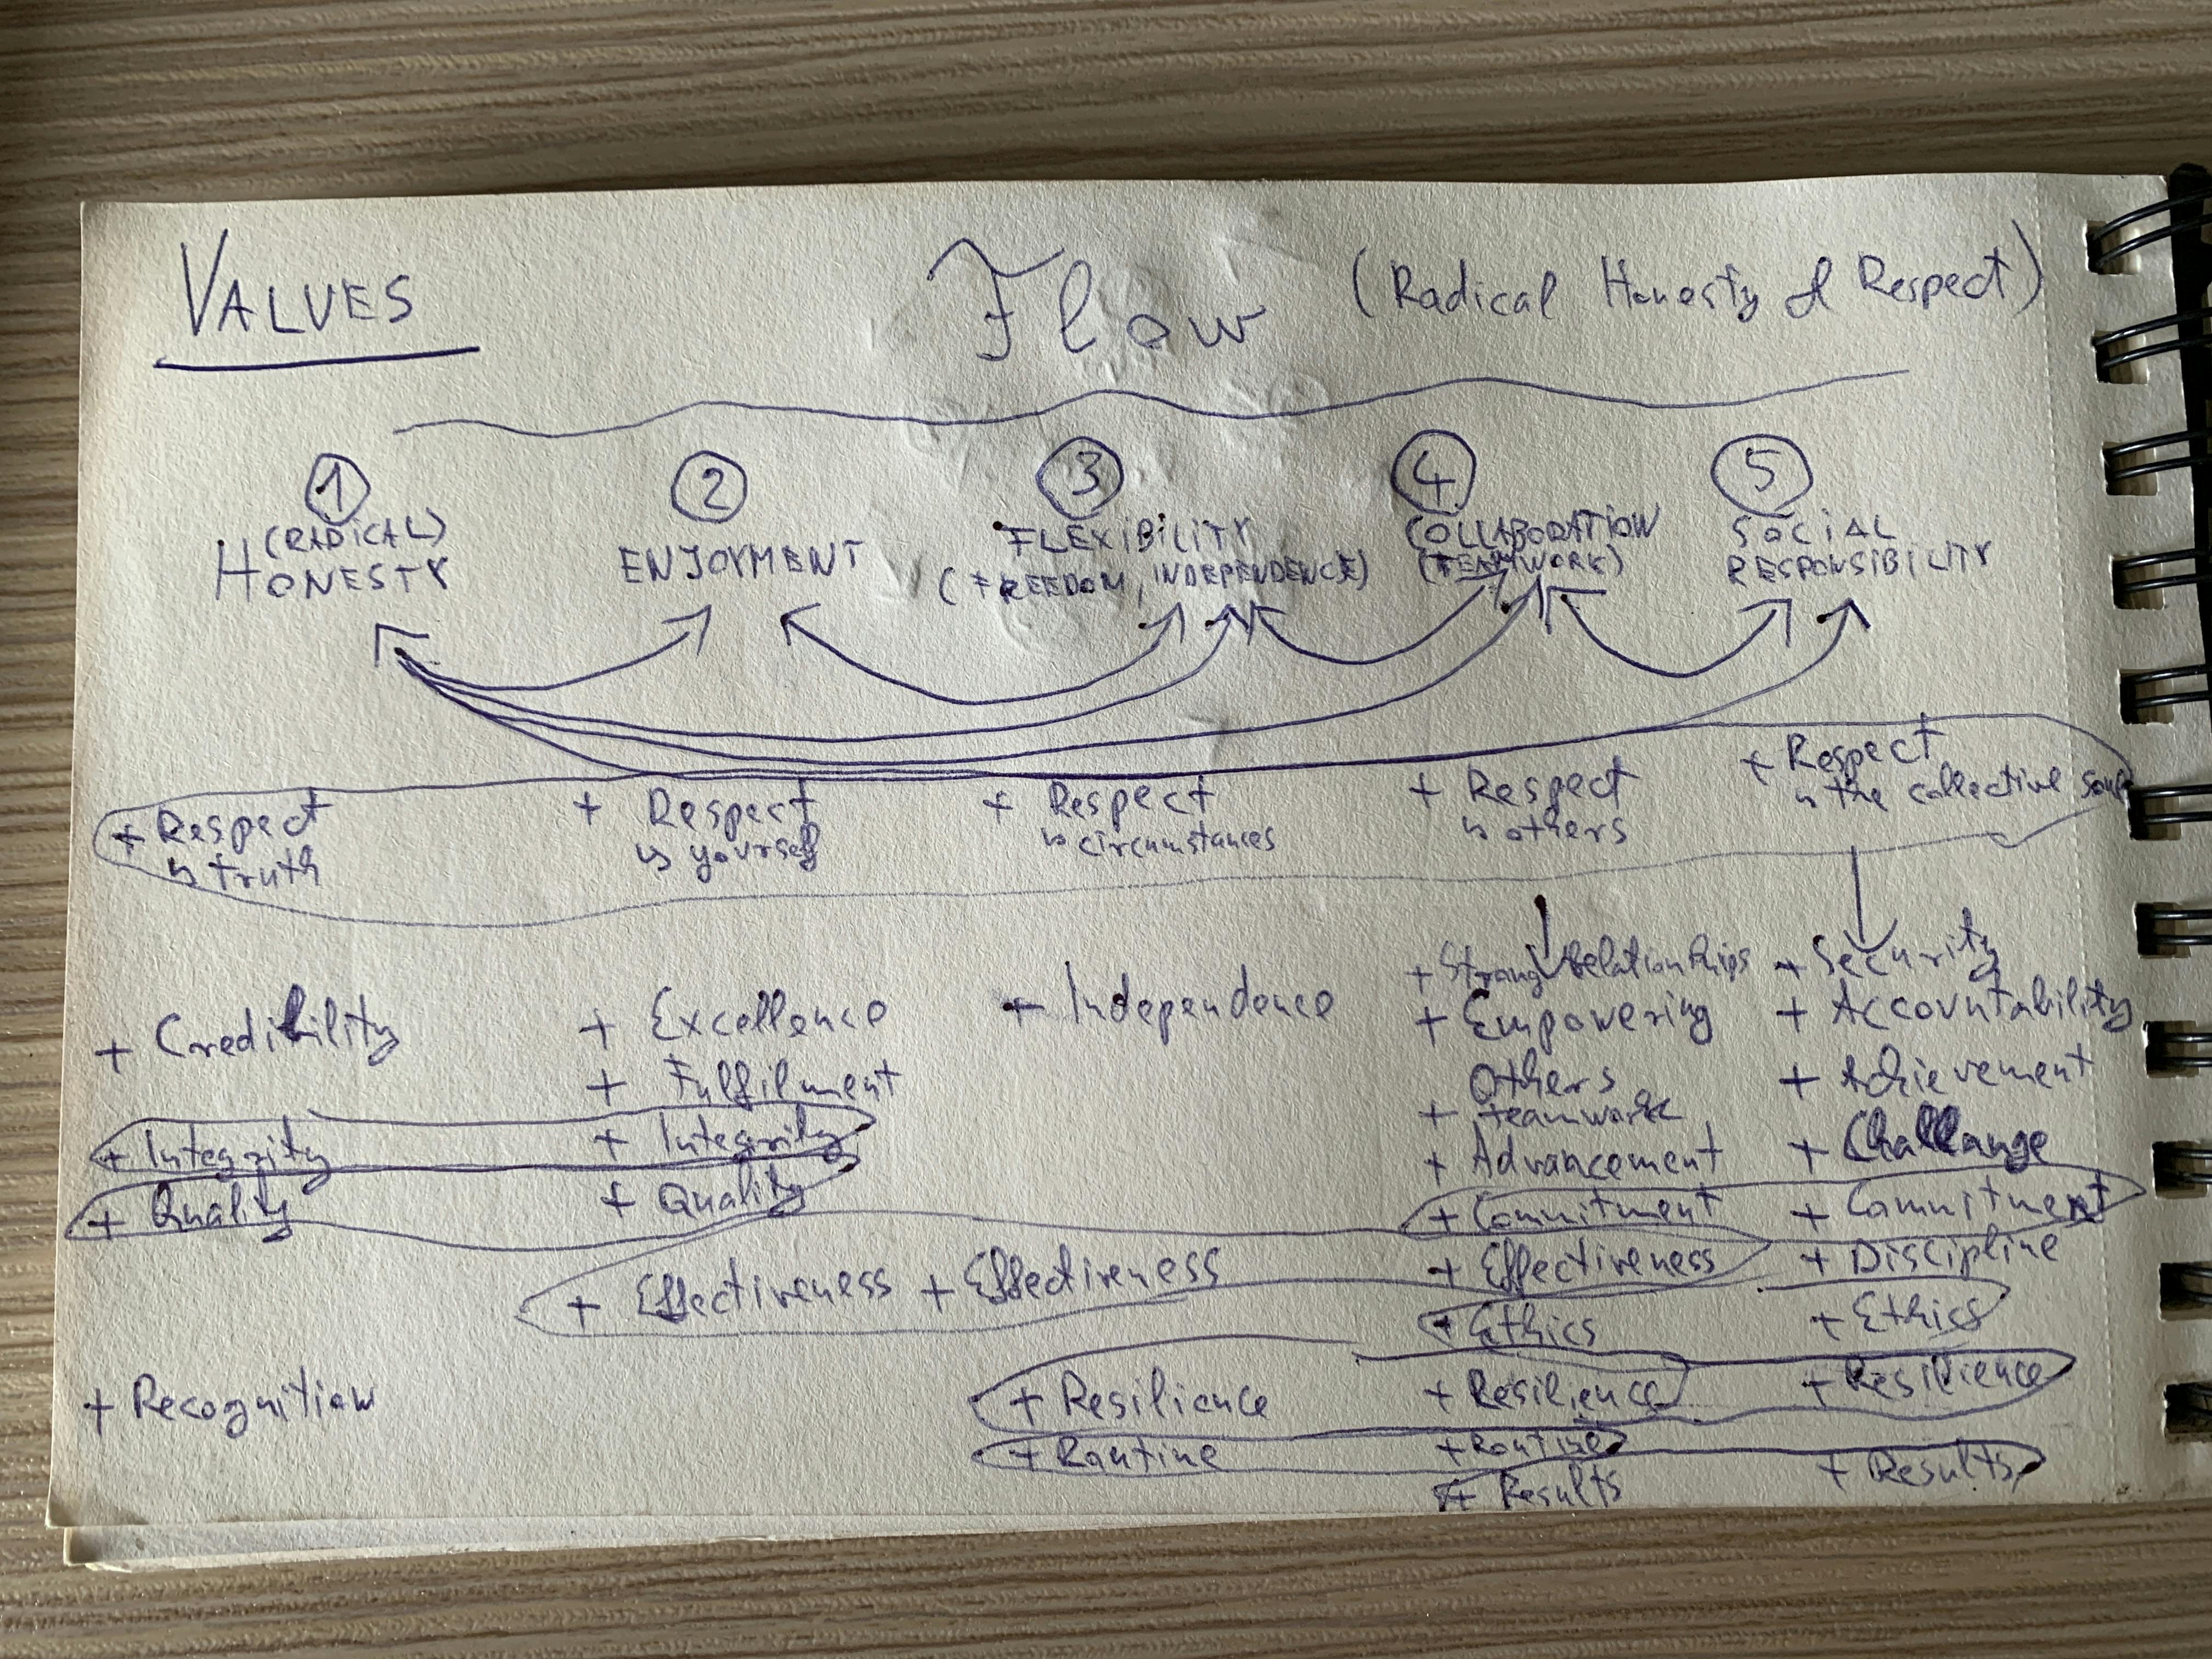 VALUES
Flow (Radical Honesty & Respect)
1 2 3 4 5
(RADICAL) HONESTY
ENJOYMENT
FLEXIBILITY
(FREEDOM, INDEPENDENCE)
COLLABORATION
(TEAMWORK)
SOCIAL
RESPONSIBILITY
+ Respect
↳ truth
+ Respect
↳ yourself
+ Respect
↳ circumstances
+ Respect
↳ others
+ Respect
↳ the collective soul
+ Credibility
+ Integrity
+ Quality
+ Recognition
+ Excellence
+ Fulfilment
+ Integrity
+ Quality
+ Effectiveness
+ Independence
+ Effectiveness
+ Resilience
+ Routine
+ Strong Relationships
+ Empowering
Others
+ teamwork
+ Advancement
+ Commitment
+ Effectiveness
+ Ethics
+ Resilience
+ Routine
+ Results
+ Security
+ Accountability
+ Achievement
+ Challange
+ Commitment
+ Discipline
+ Ethics
+ Resilience
+ Results